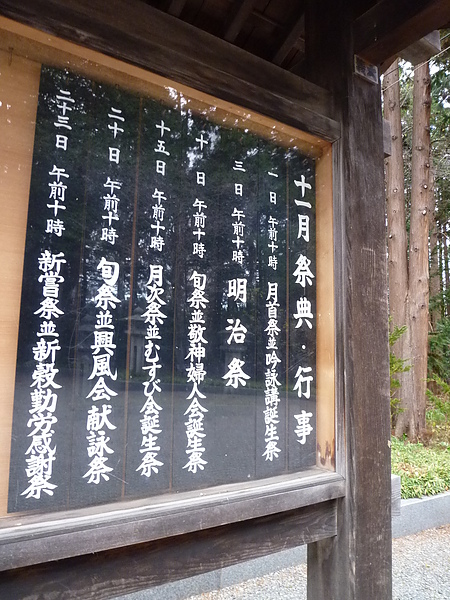 十一月 祭典・行事
一日 午前十時 月首祭並吟詠講誕生祭
三日 午前十時 明治祭
十日 午前十時 旬祭並敬神婦人会誕生祭
十五日 午前十時 月次祭並むすび会誕生祭
二十日 午前十時 旬祭並興風会献詠祭
二十三日 午前十時 新嘗祭並新穀勤労感謝祭